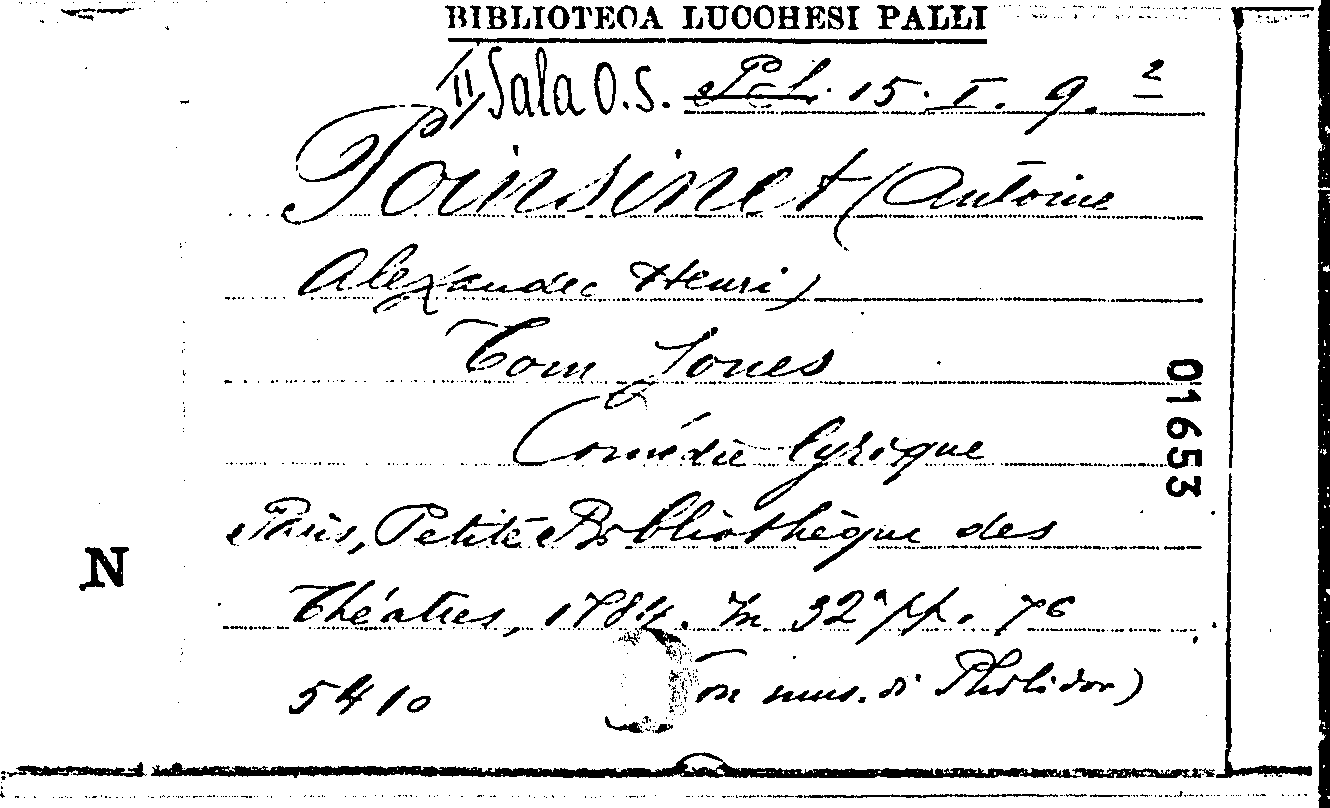 BIBLIOTECA LUCCHESI PALLI
II Sala O.S. Pal. 15. I. 9. 2
Poinsinet (Antoine
Alexandre Henri)
Tom Jones
Comédie lyrique
01653
Paris, Petite Bibliothèque des
N
Théatres, 1784. In 32° pp. 76
5410
(on mus. di Philidor)